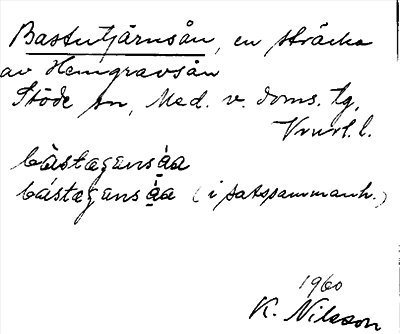 Bastutjärnsån, en sträcka
av Hemgravsån
Stöde sn, Med. v. doms. tg,
bàstagensåa
bástagensåa (i satssammanh.)
1960
K. Nilsson